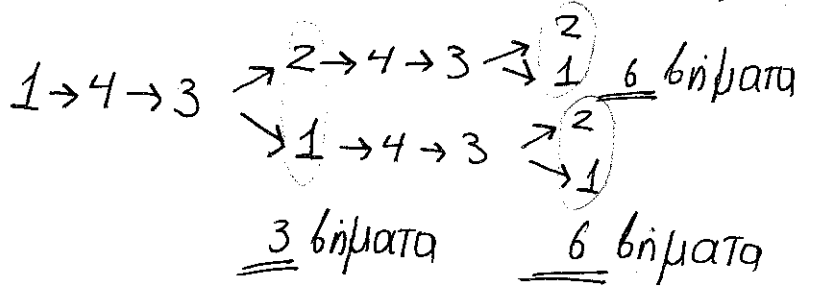 2
1 → 4 → 3 2 → 4 → 3 1 6 βήματα
1 → 4 → 3 2
1
3 βήματα 6 βήματα